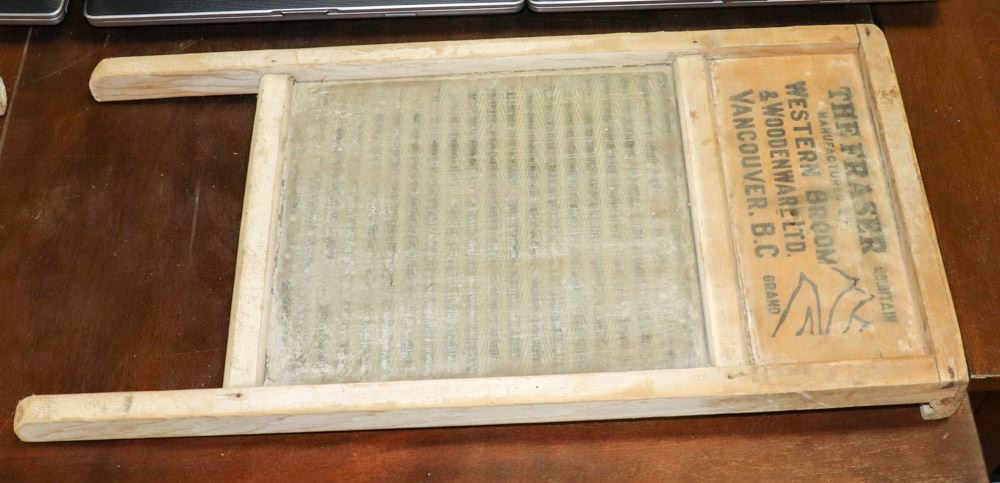 THE FRASER
MANUFACTURED
WESTERN BROOM
& WOODENWARE LTD.
VANCOUVER. B.C
MOUNTAIN
GRAND